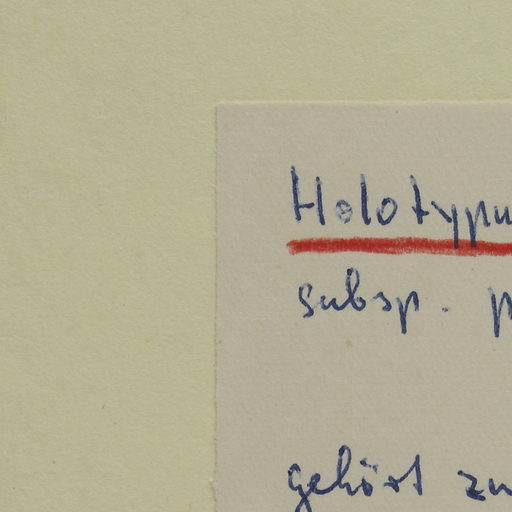 Holotypu
subsp. p
gehört zu